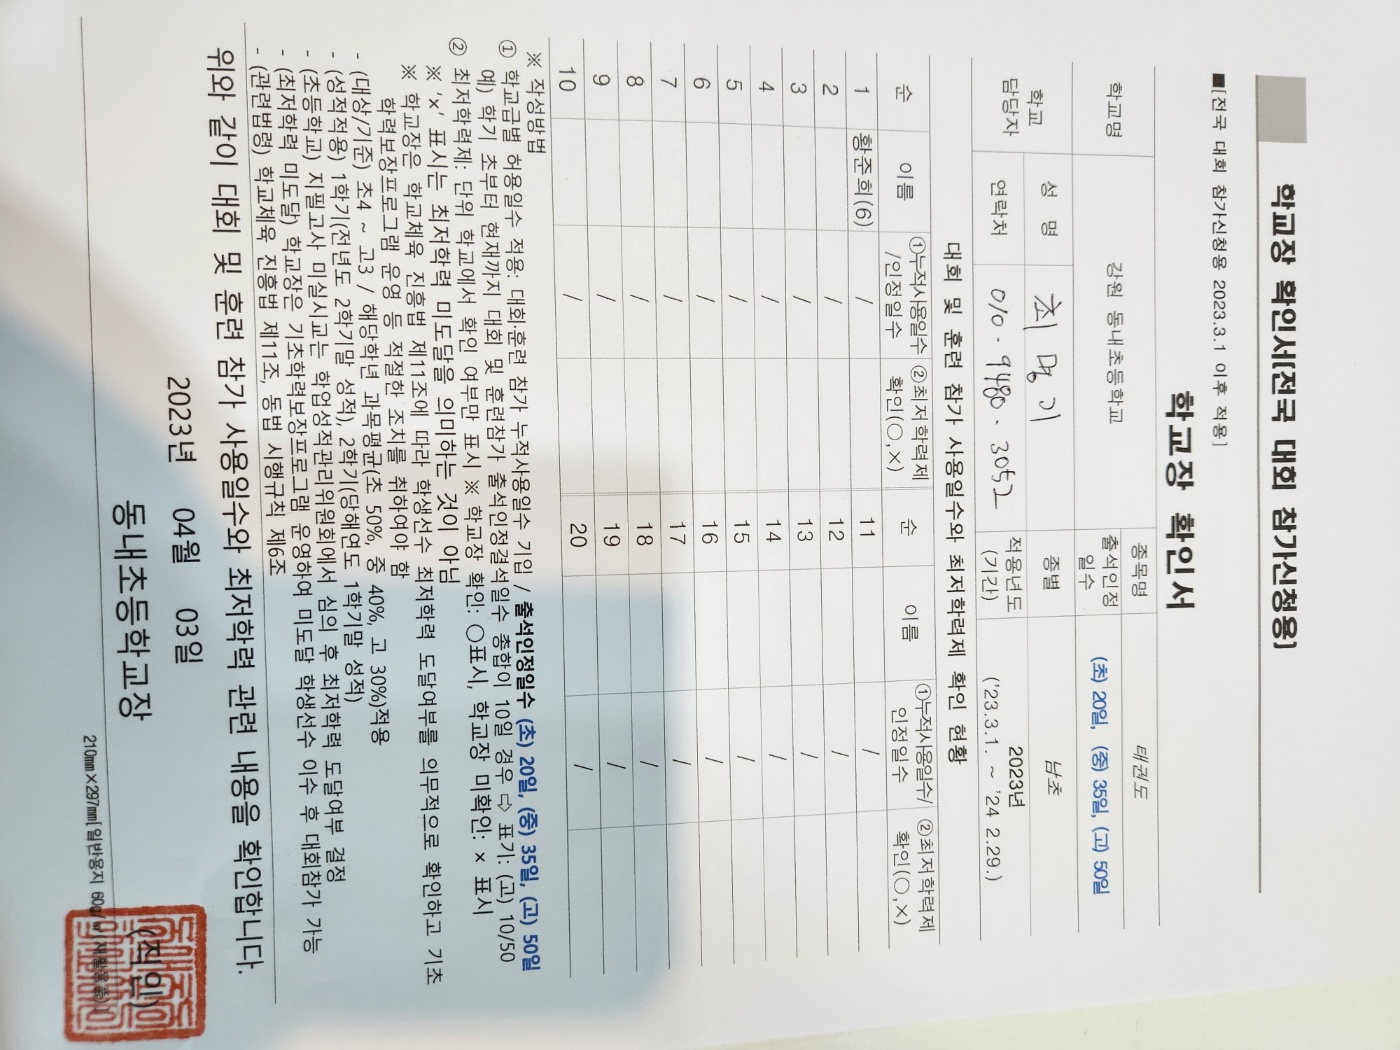 학교장 확인서[전국 대회 참가신청용]
■[전국 대회 참가신청용 2023.3.1 이후 적용]
학교장 확인서
학교명 강원 동내초등학교 종목명 태권도
출석인정일수 (초) 20일, (중) 35일, (고) 50일
학교 담당자 성 명 최 명 기 종별 남초
연락처 010 - 9480 - 3052 적용년도(기간) 2023년 ('23.3.1. ~ '24 2.29.)
대회 및 훈련 참가 사용일수와 최저학력제 확인 현황
순 이름 ①누적사용일수/인정일수 ②최저학력제 확인(○,×) 순 이름 ①누적사용일수/인정일수 ②최저학력제 확인(○,×)
1 황준희(6) / 11 /
2 / 12 /
3 / 13 /
4 / 14 /
5 / 15 /
6 / 16 /
7 / 17 /
8 / 18 /
9 / 19 /
10 / 20 /
※ 작성방법
① 학교급별 허용일수 적용: 대회·훈련 참가 누적사용일수 기입 / 출석인정일수 (초) 20일, (중) 35일, (고) 50일
예) 학기 초부터 현재까지 대회 및 훈련참가 출석인정결석일수 총합이 10일 경우 ⇨ 표기: (고) 10/50
② 최저학력제: 단위 학교에서 확인 여부만 표시 ※ 학교장 확인: ○표시, 학교장 미확인: × 표시
※ '×' 표시는 최저학력 미도달을 의미하는 것이 아님
※ 학교장은 학교체육 진흥법 제11조에 따라 학생선수 최저학력 도달여부를 의무적으로 확인하고 기초
학력보장프로그램 운영 등 적절한 조치를 취하여야 함
- (대상/기준) 초4 ~ 고3 / 해당학년 과목평균(초 50%, 중 40%, 고 30%)적용
- (성적적용) 1학기(전년도 2학기말 성적), 2학기(당해연도 1학기말 성적)
- (초등학교) 지필고사 미실시교는 학업성적관리위원회에서 심의 후 최저학력 도달여부 결정
- (최저학력 미도달) 학교장은 기초학력보장프로그램 운영하여 미도달 학생선수 이수 후 대회참가 가능
- (관련법령) 학교체육 진흥법 제11조, 동법 시행규칙 제6조
위와 같이 대회 및 훈련 참가 사용일수와 최저학력 관련 내용을 확인합니다.
2023년 04월 03일
동내초등학교장 (직인)
210mm×297mm[일반용지 60g/㎡(재활용품)]